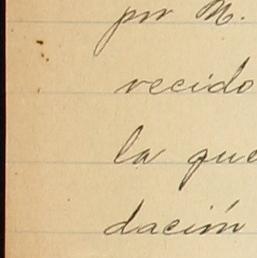 por M.
vecido
la que
dación